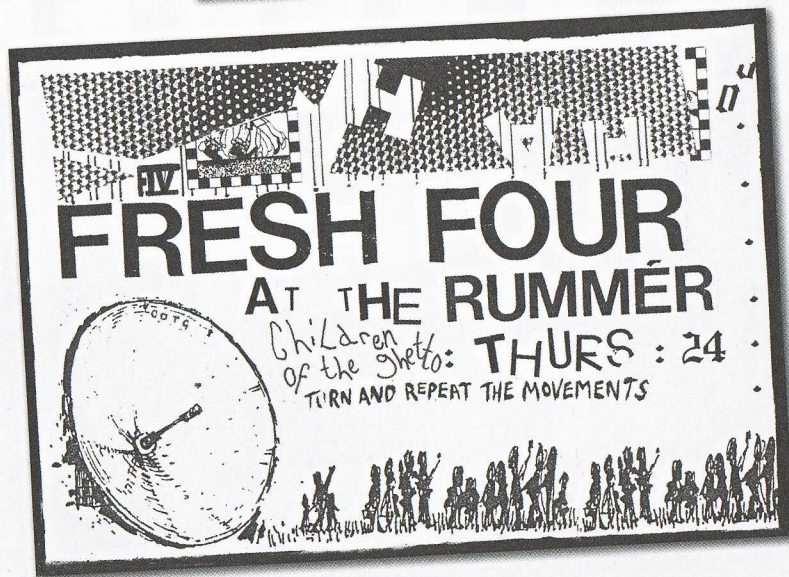 F.IV
FRESH FOUR
AT THE RUMMER
ChiLdren
of the ghetto: THURS : 24
TURN AND REPEAT THE MOVEMENTS